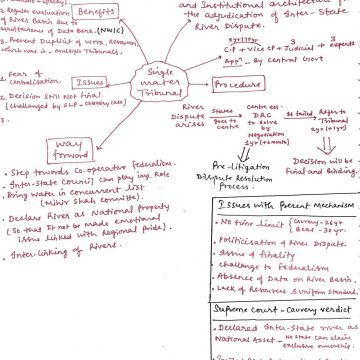 (humane + speedy).
2. Regular evaluation
of River Basin due to
Maintenance of Data Bank. (NWIC)
3. Prevent Duplicity of Work, Resources,
which was in - Multiple Tribunals.
Benefits
and Institutional architecture for
the adjudication of Inter-State
River Dispute.
5yr/70yr
C.P + Vice CP + 3 Judicial + 3 experts
App^n by Central Govt
Procedure
Single
water
Tribunal
Issues
1. Fear of
centralisation.
2. Decision still not final
(challenged by SLP - cauvery case)
River
Dispute
arises
States
Goes to
centre
centre est.
DRC
to solve
by
Negotiation
1yr (+6 month)
If failed
Refer to
Tribunal
2yr (+1yr)
Pre-Litigation
Dispute Resolution
Process.
Decision will be
Final and Binding.
way
forward
- Step towards Co-operative federalism.
- Inter-State Council can play imp. Role
- Bring water in concurrent list
(Mihir Shah committe).
- Declare River as National Property
(so that it not be made emotional
issue linked with Regional pride).
- Inter-linking of Rivers.
Issues with Present Mechanism
- No time limit { Cauvery - 26yr
Beas - 30yr.
- Politicisation of River Dispute.
- Issue of finality
- challenge to Federalism
- Absence of Data on River Basin.
- Lack of Resources & uniform standard.
Supreme Court - Cauvery verdict
- Declared Inter-State river as
National Asset - No state can claim
exclusive ownership.